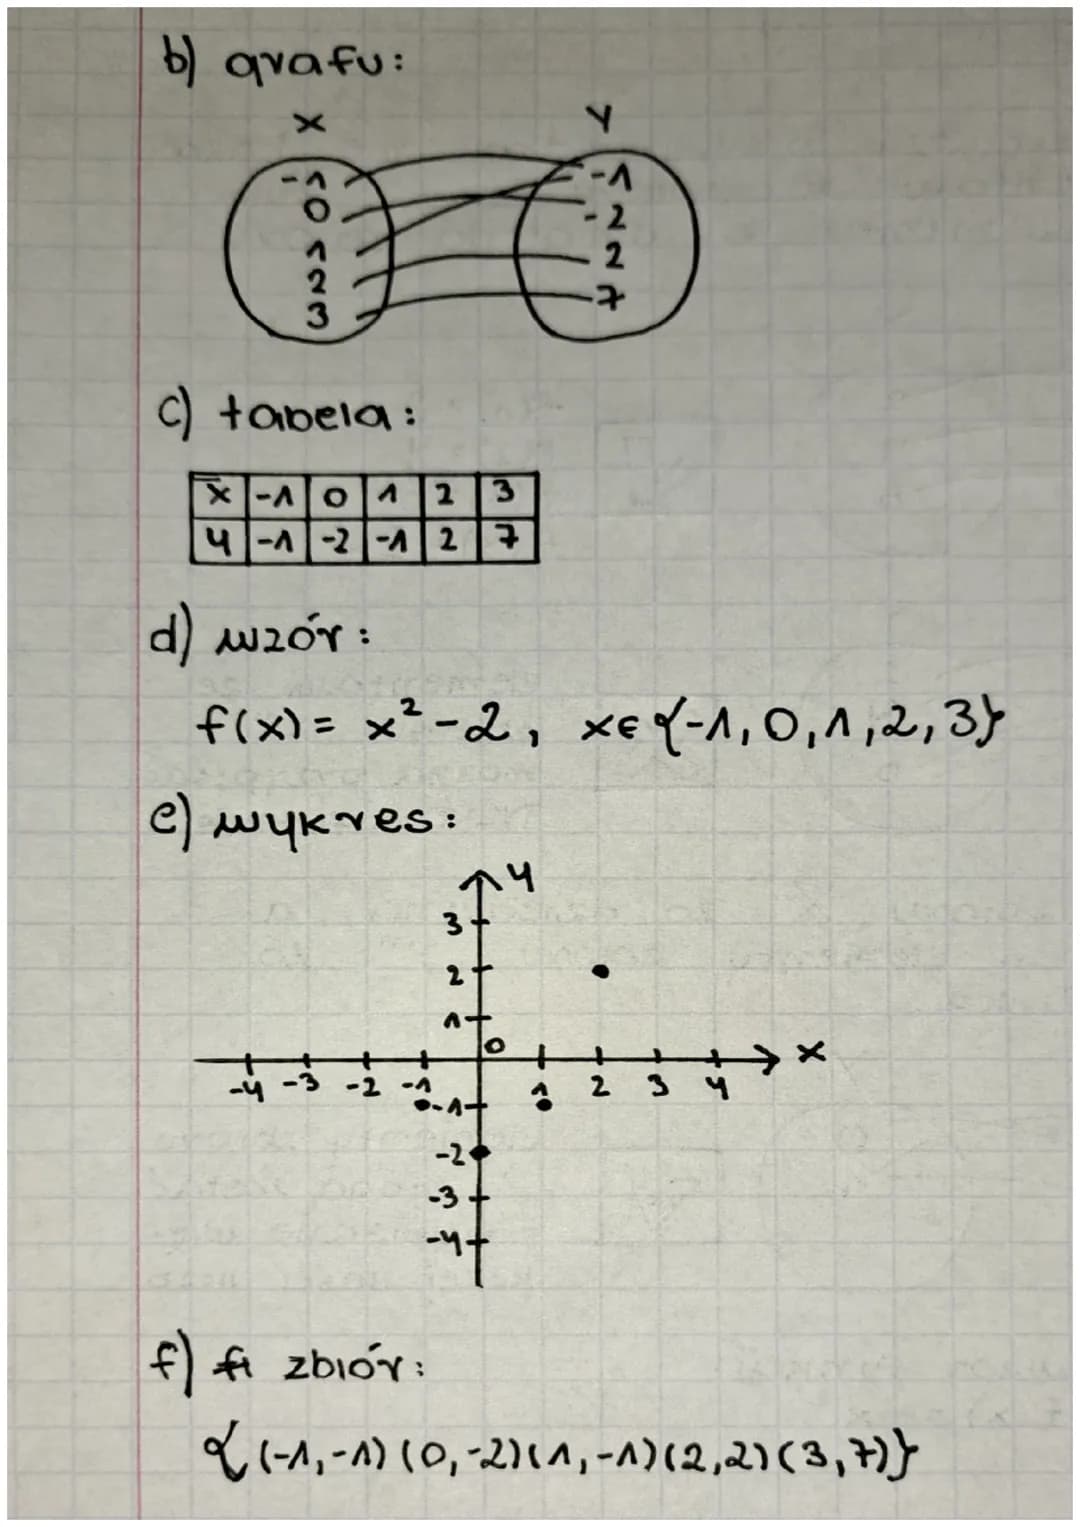 b) grafu:
X Y
-1 -1
0 -2
1 2
2 7
3
c) tabela:
x -1 0 1 2 3
y -1 -2 -1 2 7
d) wzór:
f(x) = x² - 2, x∈{-1, 0, 1, 2, 3}
e) wykres:
y
3
2
1
0 x
-4 -3 -2 -1 1 2 3 4
-1
-2
-3
-4
f) zbiór:
{(-1,-1) (0,-2) (1,-1) (2,2) (3,7)}